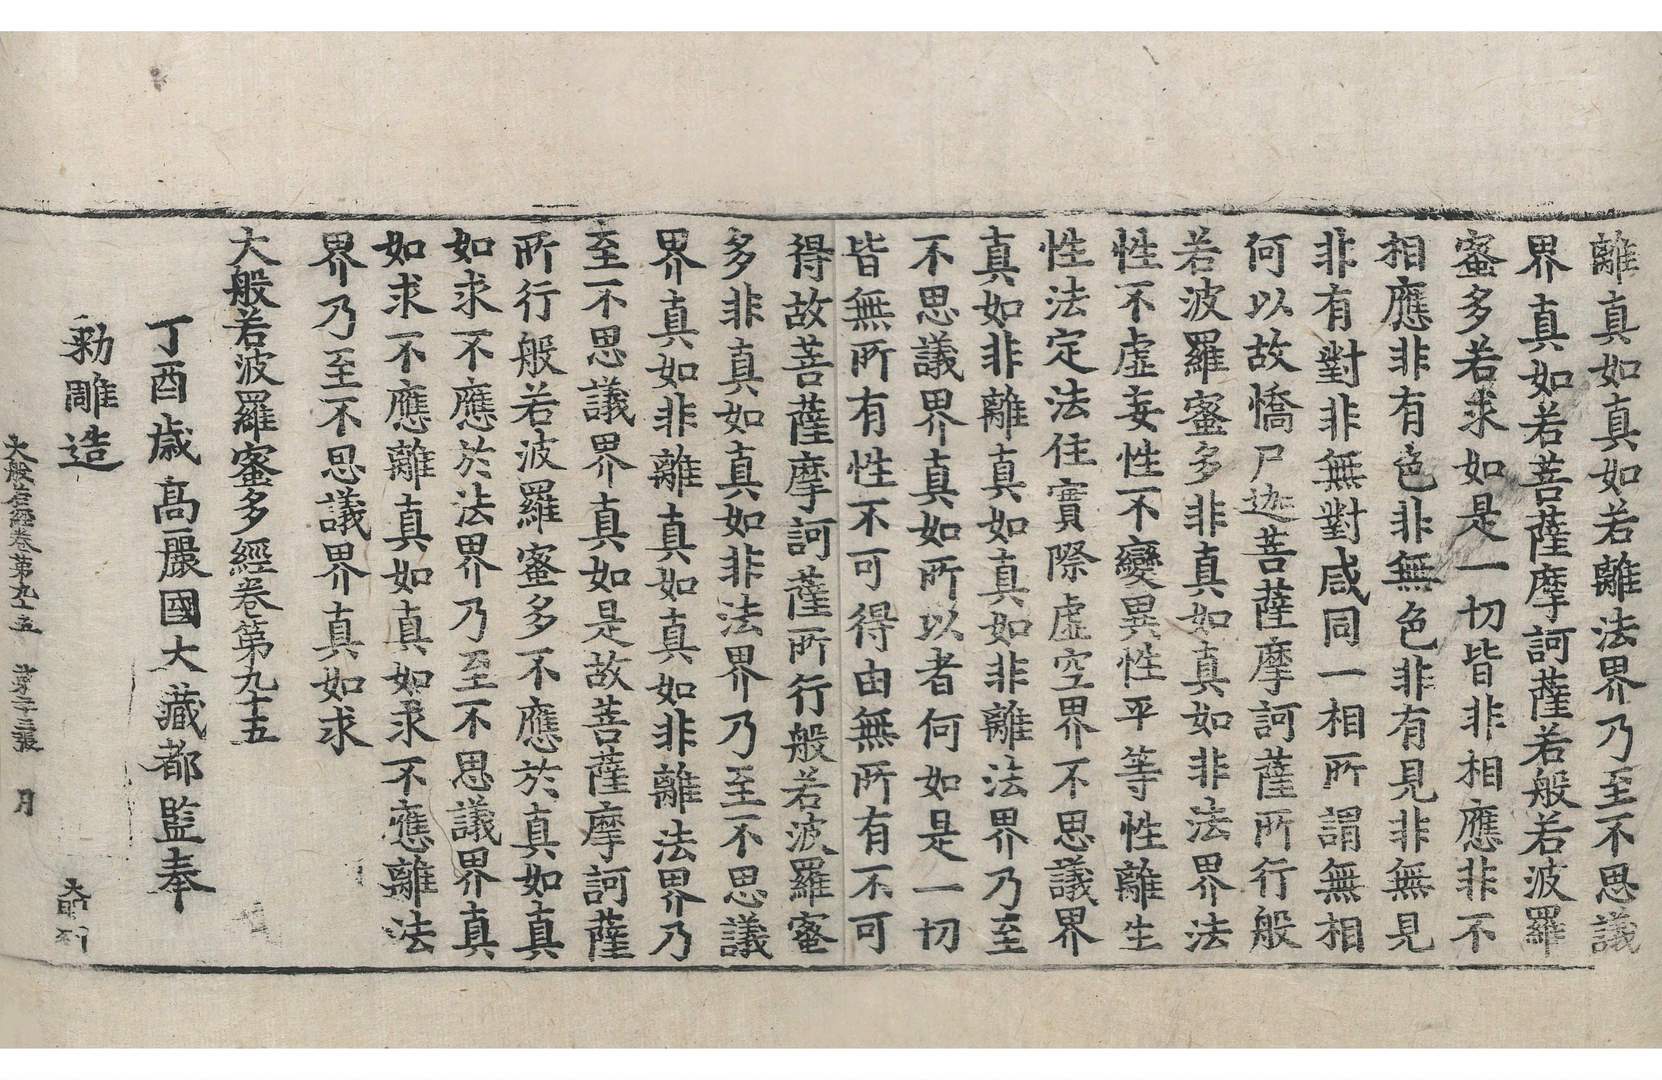 離真如真如若離法界乃至不思議
界真如若菩薩摩訶薩若般若波羅
蜜多若求如是一切皆非相應非不
相應非有色非無色非有見非無見
非有對非無對咸同一相所謂無相
何以故憍尸迦菩薩摩訶薩所行般
若波羅蜜多非真如真如非法界法
性不虛妄性不變異性平等性離生
性法定法住實際虛空界不思議界
真如非離真如真如非離法界乃至
不思議界真如所以者何如是一切
皆無所有性不可得由無所有不可
得故菩薩摩訶薩所行般若波羅蜜
多非真如真如非法界乃至不思議
界真如非離真如真如非離法界乃
至不思議界真如是故菩薩摩訶薩
所行般若波羅蜜多不應於真如真
如求不應於法界乃至不思議界真
如求不應離真如真如求不應離法
界乃至不思議界真如求
大般若波羅蜜多經卷第九十五
丁酉歲高麗國大藏都監奉
勅雕造
大般若經卷第九十五 第二十二張 月